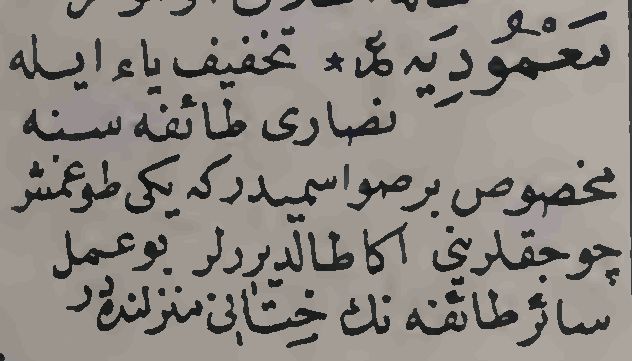 مَعْمُودِيَه * تخفيف ياء ايله
نصارى طائفه سنه
مخصوص بر صو اسميدر كه يكى طوغمش
چوجقلرينى اكا طالديررلر بو عمل
سائر طائفه نك خِتَانى منزلنده در